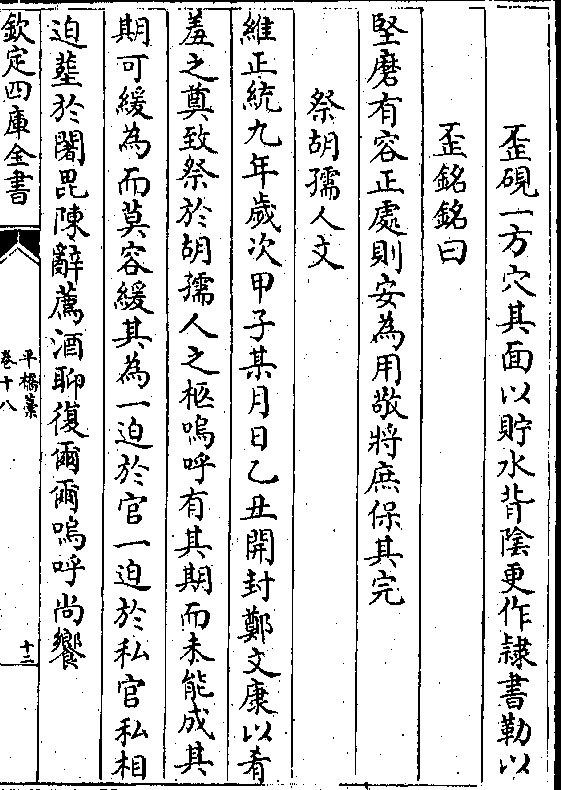 歪硯一方穴其面以貯水背隂更作隷書勒以
歪銘銘曰
堅磨有容正處則安為用敬將庶保其完
祭胡孺人文
維正統九年歲次甲子某月日乙丑開封鄭文康以肴
羞之奠致祭於胡孺人之柩嗚呼有其期而未能成其
期可緩為而莫容緩其為一迫於官一迫於私官私相
迫塟於闍毘陳辭薦酒聊復爾爾嗚呼尚饗
欽定四庫全書
平橋藁
卷十八
十二